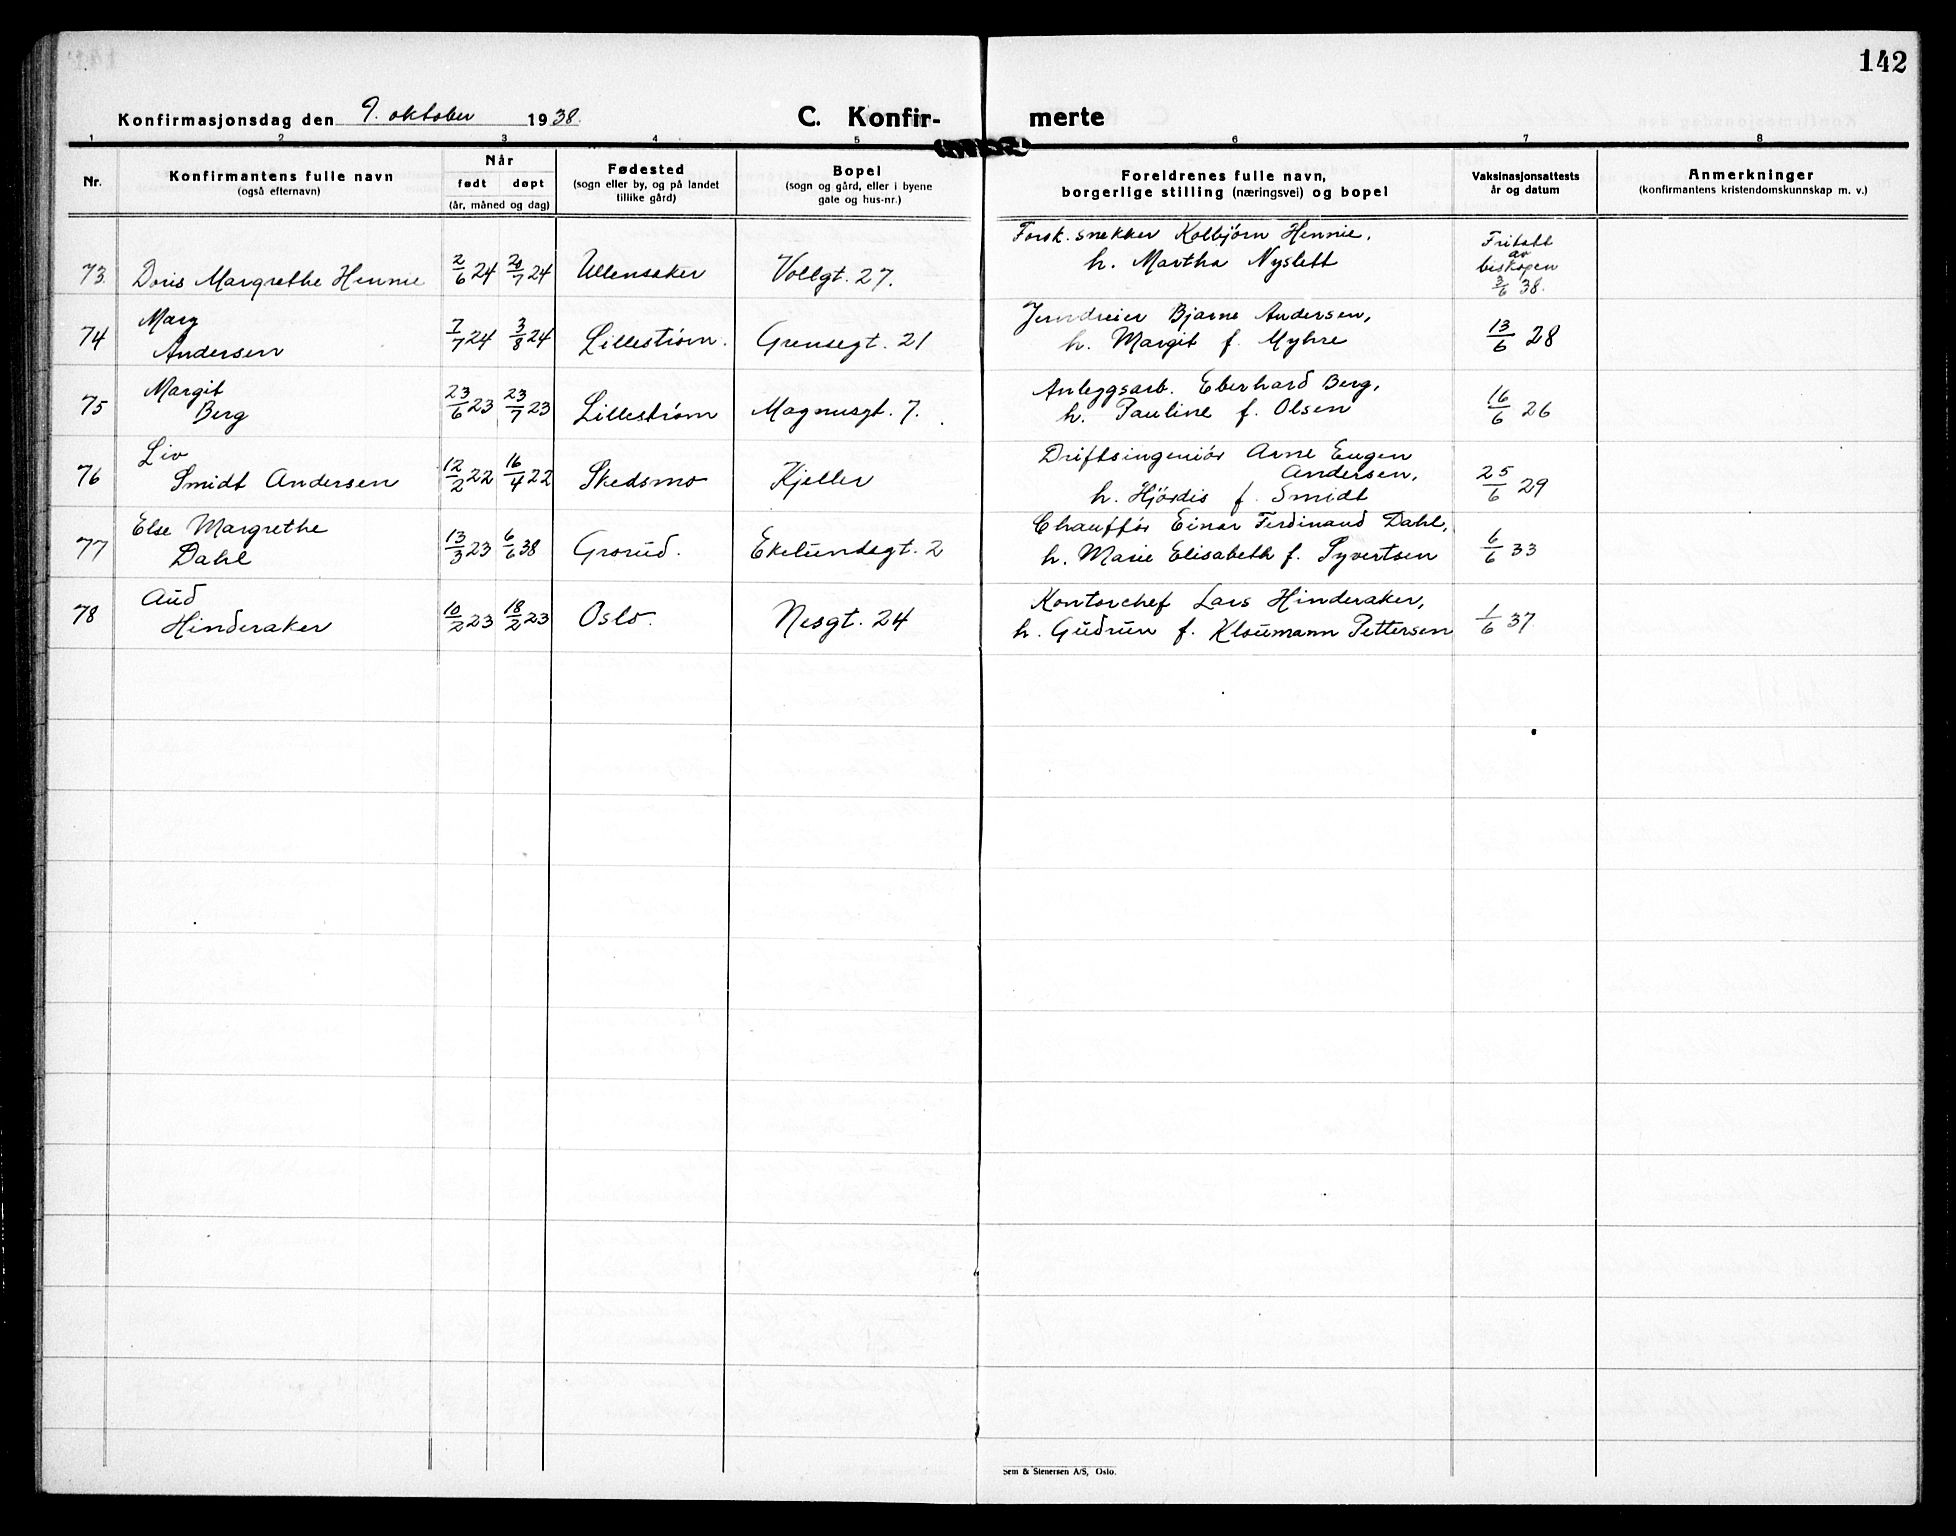 142
Konfirmasjonsdag den 9. oktober 1938.
C. Konfir- merte
1 2 3 4 5 6 7 8
Nr.
Konfirmantens fulle navn
(også efternavn)
Når
født døpt
(år, måned og dag)
Fødested
(sogn eller by, og på landet
tillike gård)
Bopel
(sogn og gård, eller i byene
gate og hus-nr.)
Foreldrenes fulle navn,
borgerlige stilling (næringsvei) og bopel
Vaksinasjonsattests
år og datum
Anmerkninger
(konfirmantens kristendomskunnskap m. v.)
Forsk. snekker Kolbjörn Hennie,
73. Doris Margrethe Hennie 2/6 24 20/7 24 Ullensaker Vollgt. 27. h. Martha Nyslett
Fritatt
av
biskopen
3/6 38.
Marg
Jerndreier Bjarne Andersen,
74 Andersen 7/7 24 3/8 24 Lillestrøm. Grensegt. 21 h. Margit f. Myhre 13/6 28
Margit
Anleggsarb. Eberhard Berg,
75 Berg 23/6 23 23/7 23 Lillestrøm Magnusgt. 7. h. Pauline f. Olsen 16/6 26
Liv
Driftsingeniör Arne Eugen
Andersen,
76 Smidt Andersen 12/2 22 16/4 22 Skedsmo Kjeller h. Hjördis f. Smidt 25/6 29
Else Margrethe
Chauffør Einar Ferdinand Dahl,
77 Dahl 13/3 23 6/6 38 Grorud. Ekelundsgt. 2 h. Marie Elisabeth f. Syvertsen 6/6 33
Aud
Kontorchef Lars Hinderaker,
78 Hinderaker 10/2 23 18/2 23 Oslo. Nesgt. 24 h. Gudrun f. Kloumann Pettersen 1/6 37
Sem & Stenersen A/S, Oslo.